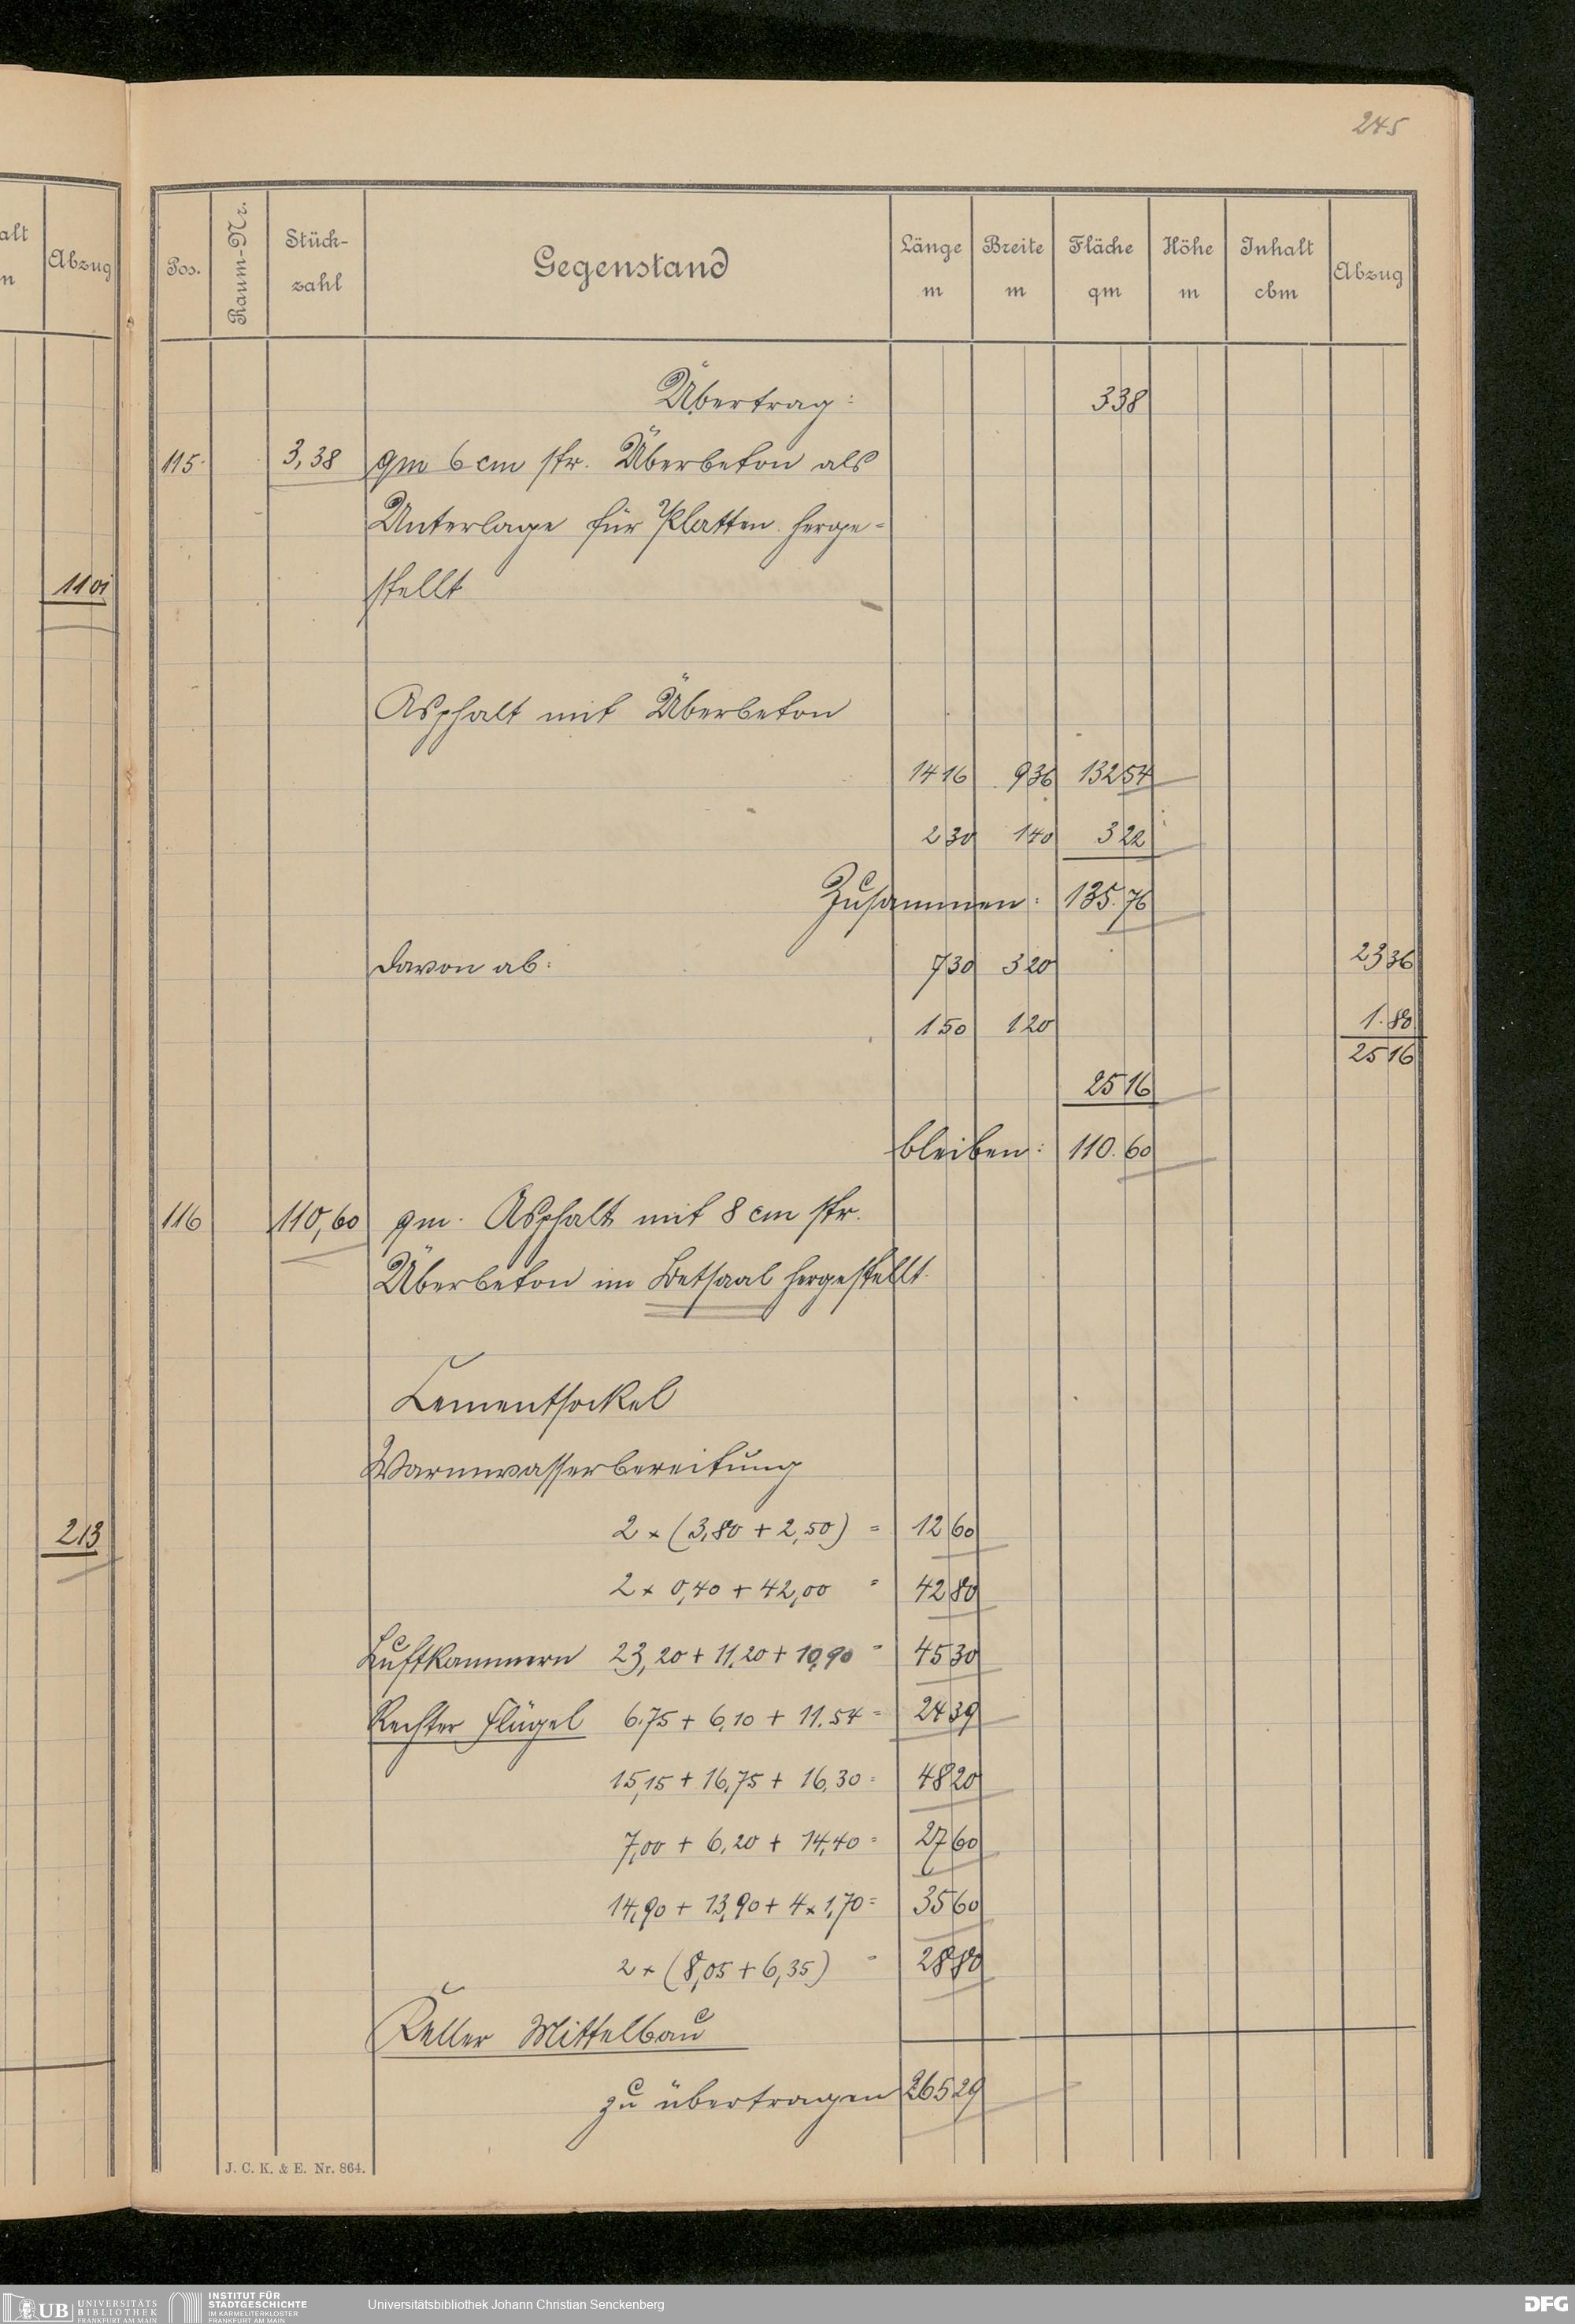 245
alt
m
Abzug
1101
213
Pos.
Raum-Nr.
Stück-
zahl
Gegenstand
Länge
m
Breite
m
Fläche
qm
Höhe
m
Inhalt
cbm
Abzug
Übertrag: 338
115. 3,38 qm 6 cm str. Überbeton als
Unterlage für Platten herge-
stellt
Asphalt mit Überbeton
14 16 9 36 132 54
2 30 1 40 3 22
Zusammen: 135.76
Davon ab: 7 30 3 20 23 36
1 50 1 20 1.80
25 16
25 16
bleiben: 110.60
116 110,60 qm. Asphalt mit 8 cm str.
Überbeton im Betsaal hergestellt.
Cementsockel
Warmwasserbereitung
2 × (3,80 + 2,50) = 12 60
2 × 0,40 + 42,00 = 42 80
Luftkammern 23,20 + 11,20 + 10,90 = 45 30
Rechter Flügel 6.75 + 6,10 + 11.54 = 24 39
15,15 + 16,75 + 16,30 = 48 20
7,00 + 6,20 + 14,40 = 27 60
14,90 + 13,90 + 4 × 1,70 = 35 60
2 × (8,05 + 6,35) = 28 80
Keller Mittelbau
zu übertragen 265 29
J. C. K. & E. Nr. 864.
UB UNIVERSITÄTS
BIBLIOTHEK
FRANKFURT AM MAIN
INSTITUT FÜR
STADTGESCHICHTE
IM KARMELITERKLOSTER
FRANKFURT AM MAIN
Universitätsbibliothek Johann Christian Senckenberg
DFG